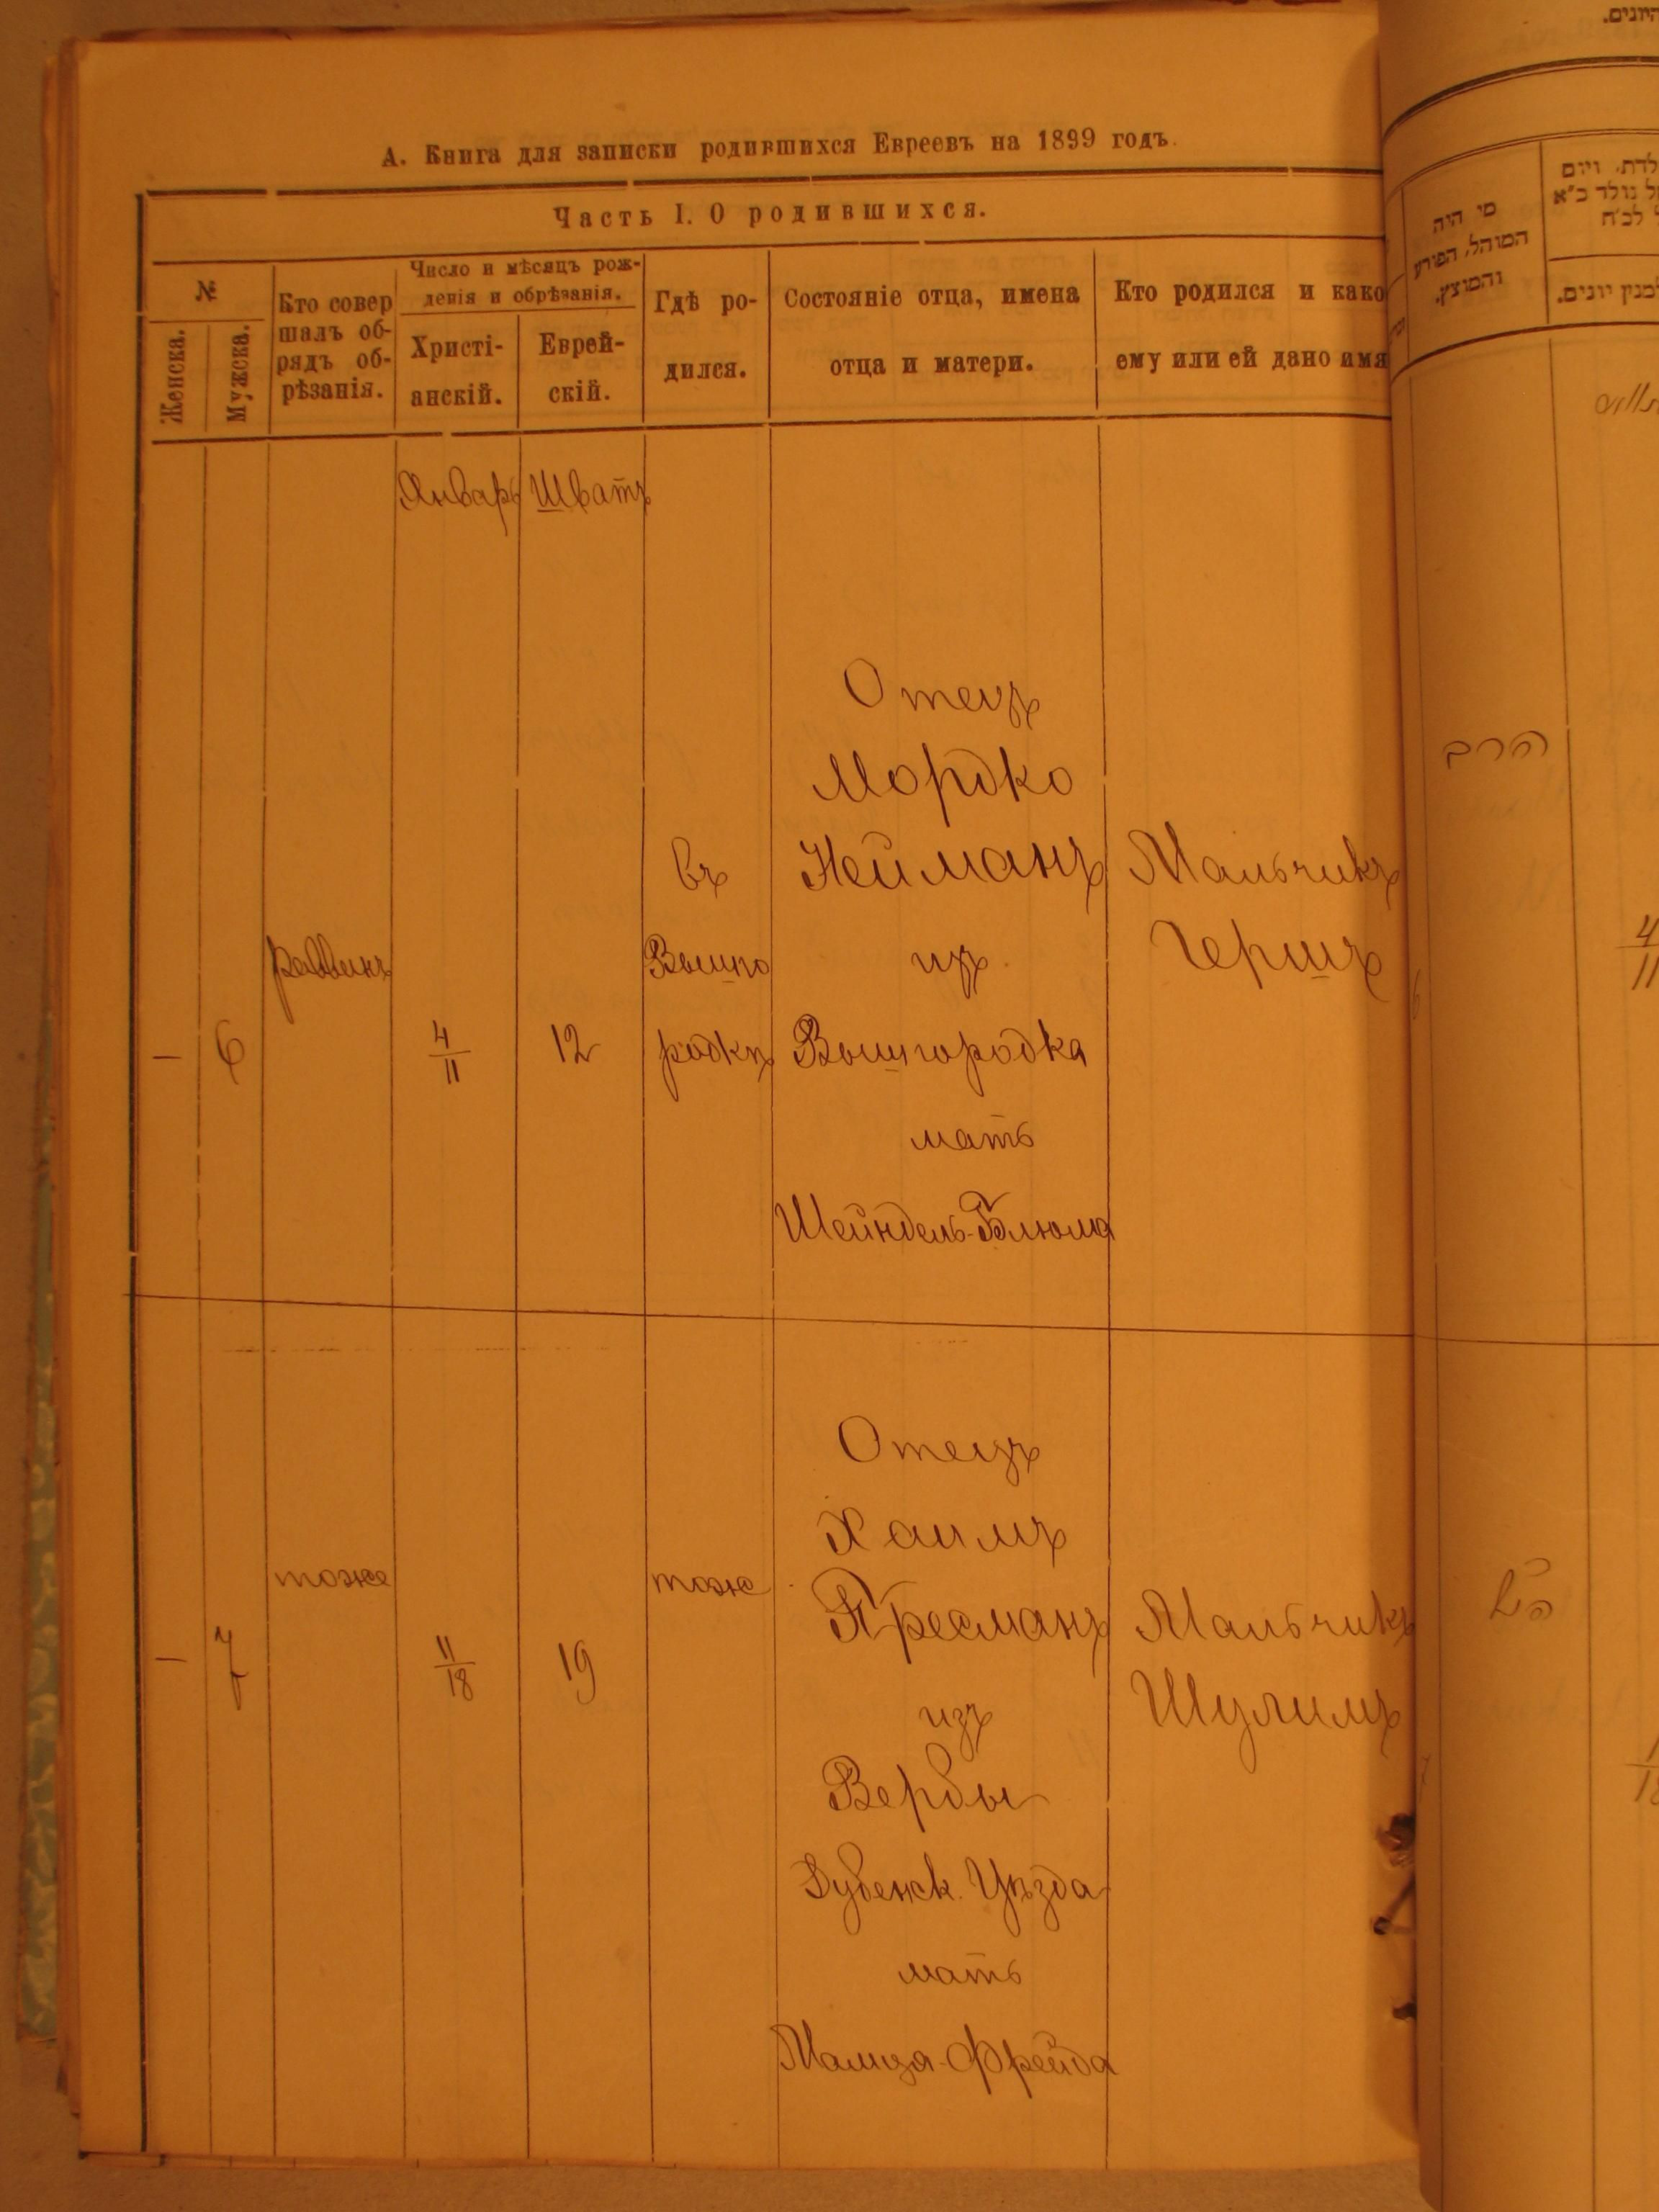 А. Книга для записки родившихся Евреевъ на 1899 годъ.
Часть I. О родившихся.
№
Женска.
Мужска.
Кто совер
шалъ об-
рядъ об-
рѣзанія.
Число и мѣсяцъ рож-
денія и обрѣзанія.
Христі-
анскій.
Еврей-
скій.
Гдѣ ро-
дился.
Состояніе отца, имена
отца и матери.
Кто родился и како
ему или ей дано имя
Январь
Шватъ
—
6
раввинъ
4/11
12
въ
Вышго
родкѣ
Отецъ
Мордко
Нейманъ
изъ
Вышгородка
мать
Шейндель-Блюма
Мальчикъ
Гершъ
—
7
тоже
11/18
19
тоже
Отецъ
Хаимъ
Пресманъ
изъ
Вербы
Дубенск. Уѣзда
мать
Малця-Фрейда
Мальчикъ
Шулимъ
היונים.
מי היה
המוהל, הפורע
והמוצץ.
לדת, ויום
ל נולד כ"א
לכ"ח
למנין יונים.
הרב
4/11
6
הנ"ל
7